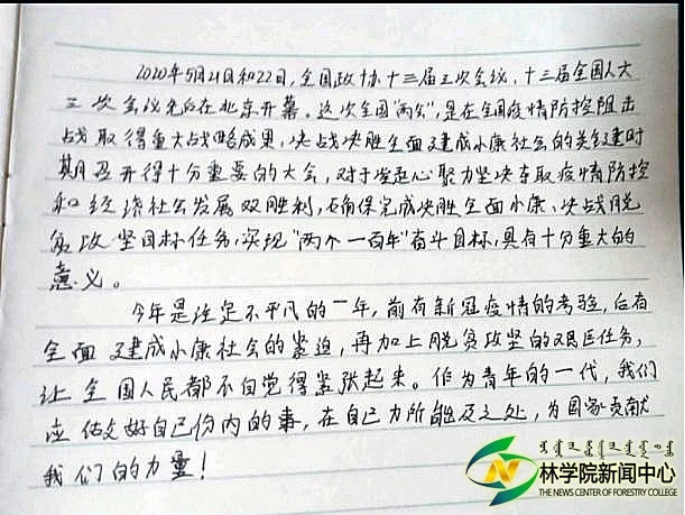 2020年5月21日和22日,全国政协十三届三次会议,十三届全国人大
三次会议先后在北京开幕。这次全国"两会",是在全国疫情防控阻击
战取得重大战略成果,决战决胜全面建成小康社会的关键时
期召开得十分重要的大会,对于坚定心聚力坚决夺取疫情防控
和经济社会发展双胜利,确保完成决胜全面小康、决战脱
贫攻坚目标任务,实现"两个一百年"奋斗目标,具有十分重大的
意义。
今年是注定不平凡的一年,前有新冠疫情的考验,后有
全面建成小康社会的紧迫,再加上脱贫攻坚的艰巨任务,
让全国人民都不自觉得紧张起来。作为青年的一代,我们
应做好自己份内的事,在自己力所能及之处,为国家贡献
我们的力量!
林学院新闻中心
THE NEWS CENTER OF FORESTRY COLLEGE